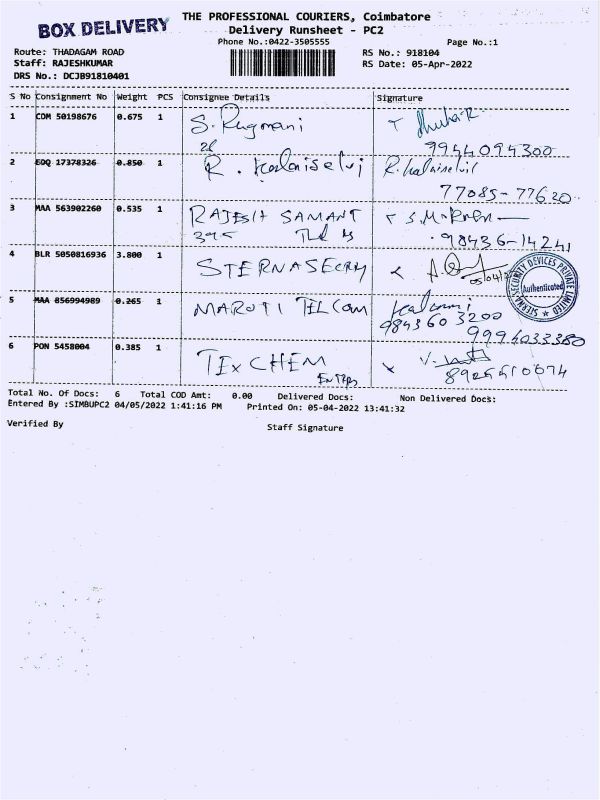 BOX DELIVERY
THE PROFESSIONAL COURIERS, Coimbatore
Delivery Runsheet - PC2
Phone No.:0422-3505555
Page No.:1
Route: THADAGAM ROAD
Staff: RAJESHKUMAR
DRS No.: DCJB91810401
RS No.: 918104
RS Date: 05-Apr-2022
S No Consignment No Weight PCS Consignee Details Signature
1 CDM 50198676 0.675 1 S. Rugmani
9944094300
2 EDQ 17378326 0.850 1 R. Kalaiselvi R. Kalaiselvi
77085-77620
3 MAA 563902260 0.535 1 RAJESH SAMANT
395
98436-14241
4 BLR 5050816936 3.800 1
05/04/
SIERNA SECURITY DEVICES PRIVATE LIMITED
Authenticated
5 MAA 856994989 0.265 1 MARUTI TELCOM
9843603200
9994033380
6 PON 5458004 0.385 1 TEXCHEM
Total No. Of Docs: 6 Total COD Amt: 0.00 Delivered Docs: Non Delivered Docs:
Entered By :SIMBUPC2 04/05/2022 1:41:16 PM Printed On: 05-04-2022 13:41:32
Verified By Staff Signature